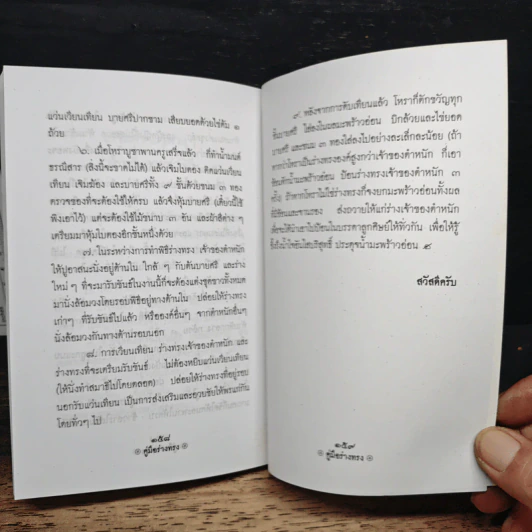 แว่นเวียนเทียน บายศรีปากชาม เสียบยอดด้วยไข่ต้ม ๑
ถ้วย
๖. เมื่อโหราบูชาพานครูเสร็จแล้ว ก็ทำน้ำมนต์
ธรณีสาร (สิ่งนี้จะขาดไม่ได้) แล้วเจิมใบตอง ติดแว่นเวียน
เทียน เจิมฆ้อง และบายศรีทั้ง ๙ ชั้นด้วยขนม ๓ ทอง
ตรวจของที่จะต้องใช้ให้ครบ แล้วจึงหุ้มบายศรี (เดี๋ยวนี้ใช้
พิงเอาไว้) แต่จะต้องใช้ไม้ขนาบ ๓ อัน และผ้าสีต่าง ๆ
เตรียมมาหุ้มใบตองอีกชั้นหนึ่งด้วย
๗. ในระหว่างการทำพิธีร่างทรง เจ้าของตำหนัก
ให้ปูอาสนะนั่งอยู่ด้านใน ใกล้ ๆ กับต้นบายศรี และร่าง
ใหม่ ๆ ที่จะมารับขันธ์ในงานนี้ก็จะต้องแต่งชุดขาวทั้งหมด
มานั่งล้อมวงโดยรอบพิธีอยู่ทางด้านใน ปล่อยให้ร่างทรง
เก่าๆ ที่รับขันธ์ไปแล้ว หรือองค์อื่นๆ จากตำหนักอื่นๆ
นั่งล้อมวงกันทางด้านรอบนอก
๘. การเวียนเทียน ร่างทรงเจ้าของตำหนัก และ
ร่างทรงที่จะเตรียมรับขันธ์ ไม่ต้องหยิบแว่นเวียนเทียน
(ให้นั่งทำสมาธิไปโดยตลอด) ปล่อยให้ร่างทรงที่อยู่รอบ
นอกรับแว่นเทียน เป็นการส่งเสริมและอวยชัยให้พรแก่กัน
โดยทั่วๆ ไป
๑๕๘
คู่มือร่างทรง
๙. หลังจากการดับเทียนแล้ว โหราก็ตักขวัญทุก
ชั้นบายศรี ใส่ลงในผลมะพร้าวอ่อน ปีกกล้วยและไข่ยอด
บายศรี และขนม ๓ ทองใส่ลงไปอย่างละเล็กละน้อย (ถ้า
หากว่าโหราเป็นร่างทรงองค์สูงกว่าเจ้าของตำหนัก ก็เอา
ช้อนตักน้ำมะพร้าวอ่อน ป้อนร่างทรงเจ้าของตำหนัก ๓
ครั้ง ถ้าหากโหราไม่ใช่ร่างทรงก็ซึ่งยกมะพร้าวอ่อนทั้งผล
ที่มีช้อนและขานรอง ส่งถวายให้แก่ร่างเจ้าของตำหนัก
เพื่อจะได้นำเอาไปป้อนในบรรดาลูกศิษย์ให้ทั่วกัน เพื่อให้รู้
ซึ้งถึงน้ำใจอันใสบริสุทธิ์ ประดุจน้ำมะพร้าวอ่อน ๔
สวัสดีครับ
๑๕๙
คู่มือร่างทรง